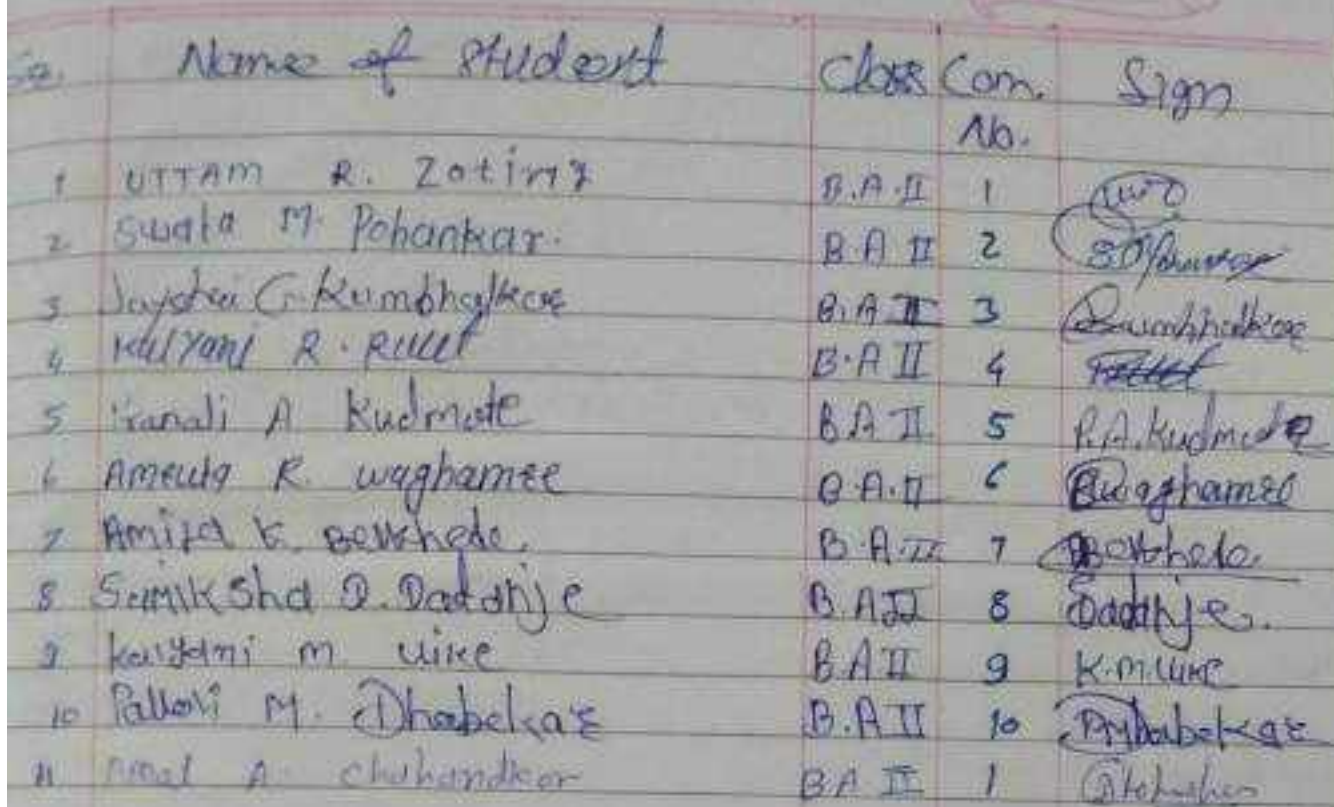 Sr. Name of Student Class Com. No. Sign
1 UTTAM R. Zoting B.A.II 1
2 Swata M. Pohankar. B.A II 2
3 Jayshri G. Kumbhalkar B.A II 3 Kumbhalkar
4 Kalyani R. Raut B.A II 4 Raut
5 Pranali A Kudmate B.A II 5 P.A.Kudmate
6 R. waghamre B.A.II 6 Rwaghamre
7 E. Belkhede. B.A.II 7 Belkhede.
8 Samiksha D. Dadanje B.A II 8 Dadanje.
9 Kalyani m uike B.A II 9 K.m.uike
10 Pallavi M. Dhabekar B.A II 10 PMDhabekar
11 A. B.A II 1